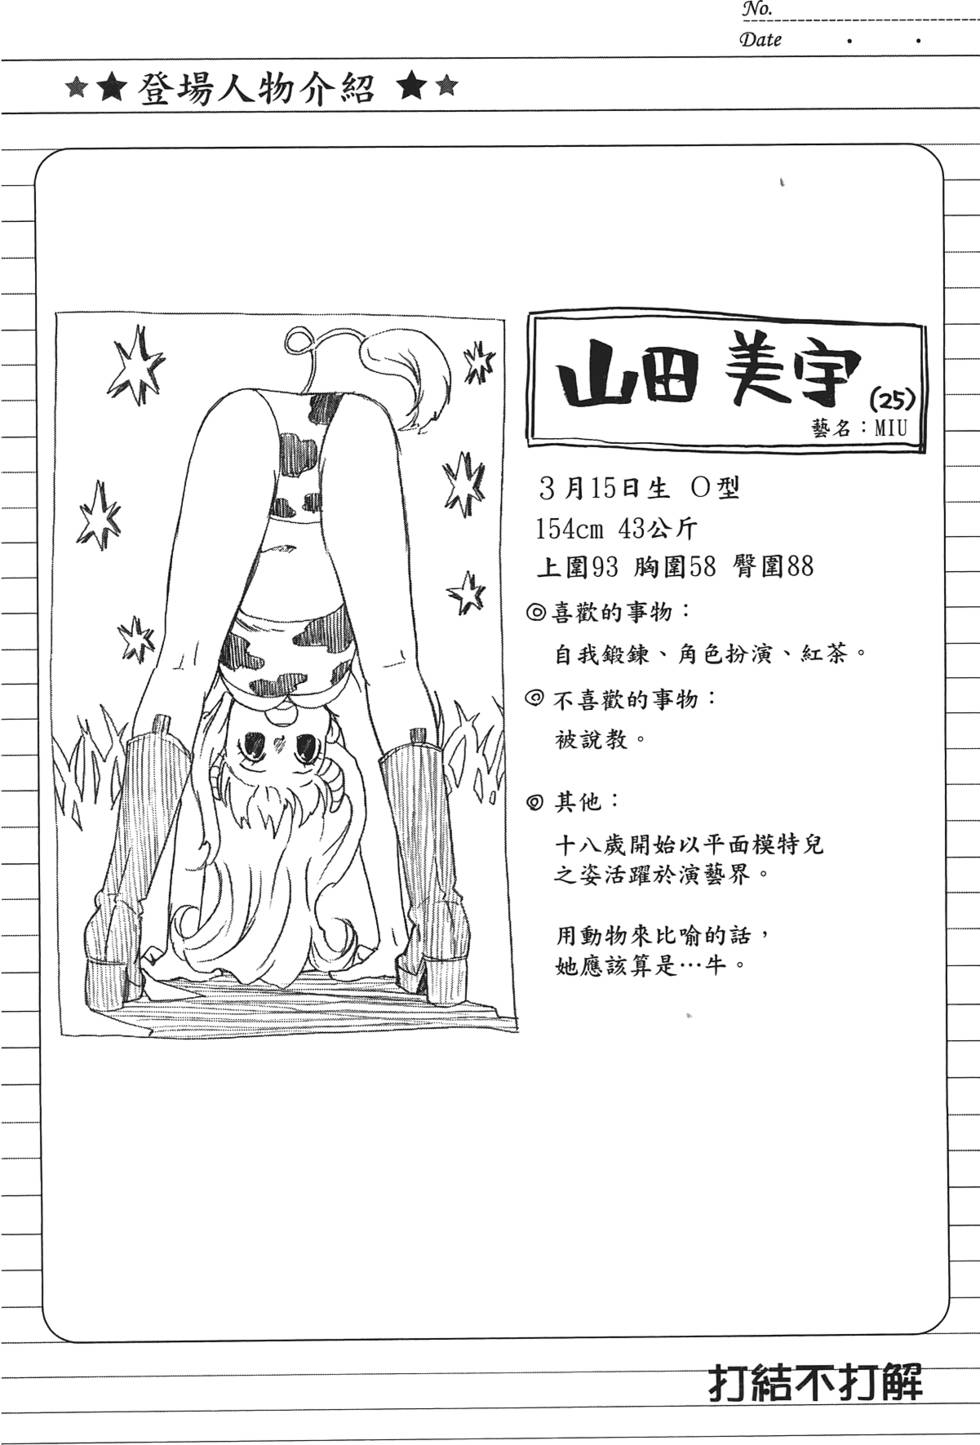 No.
Date
★★登場人物介紹★★
山田美宇(25)
藝名：MIU
3月15日生 O型
154cm 43公斤
上圍93 胸圍58 臀圍88
◎喜歡的事物：
自我鍛鍊、角色扮演、紅茶。
◎不喜歡的事物：
被說教。
◎其他：
十八歲開始以平面模特兒
之姿活躍於演藝界。
用動物來比喻的話，
她應該算是…牛。
打結不打解